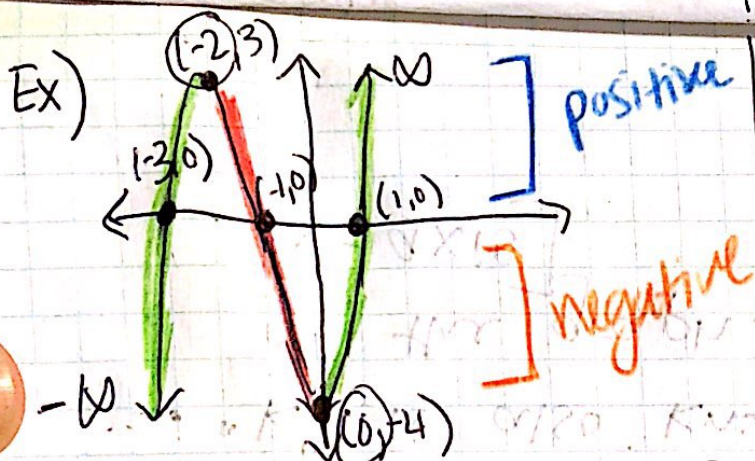 (-2,3)
Ex)
∞
positive
(-3,0)
(-1,0)
(1,0)
negative
-∞
(0,-4)